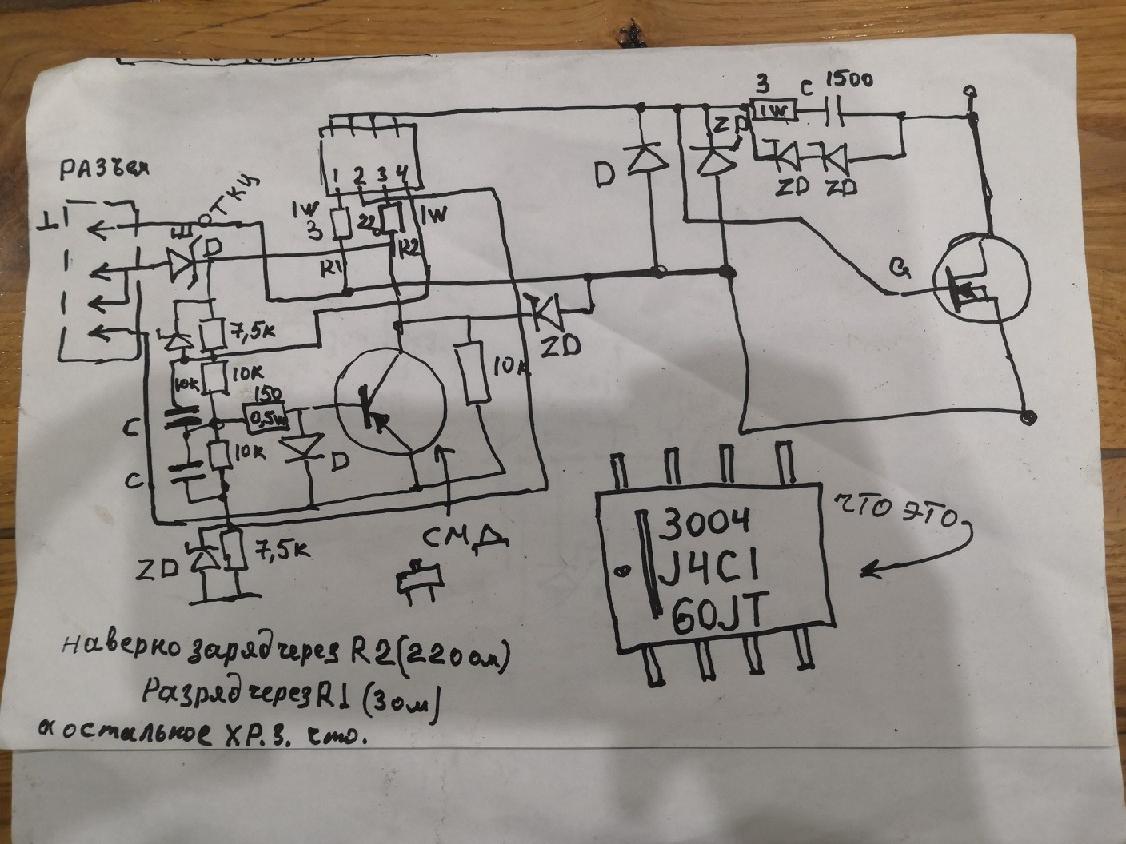 3 C 1500
1W
РАЗЪЕМ
ZD
D
ZD ZD
1 2 3 4
1W 1W
3 22
R1 R2
Ш
D
G
7,5к
ZD
10к
10к 10к
150
0,5W
C
10к D
C
СМД
ZD 7,5к
ЧТО ЭТО
3004
J4C1
60JT
наверно заряд через R2 (220 ом)
Разряд через R1 (3 ом)
а остальное ХР.З. что.